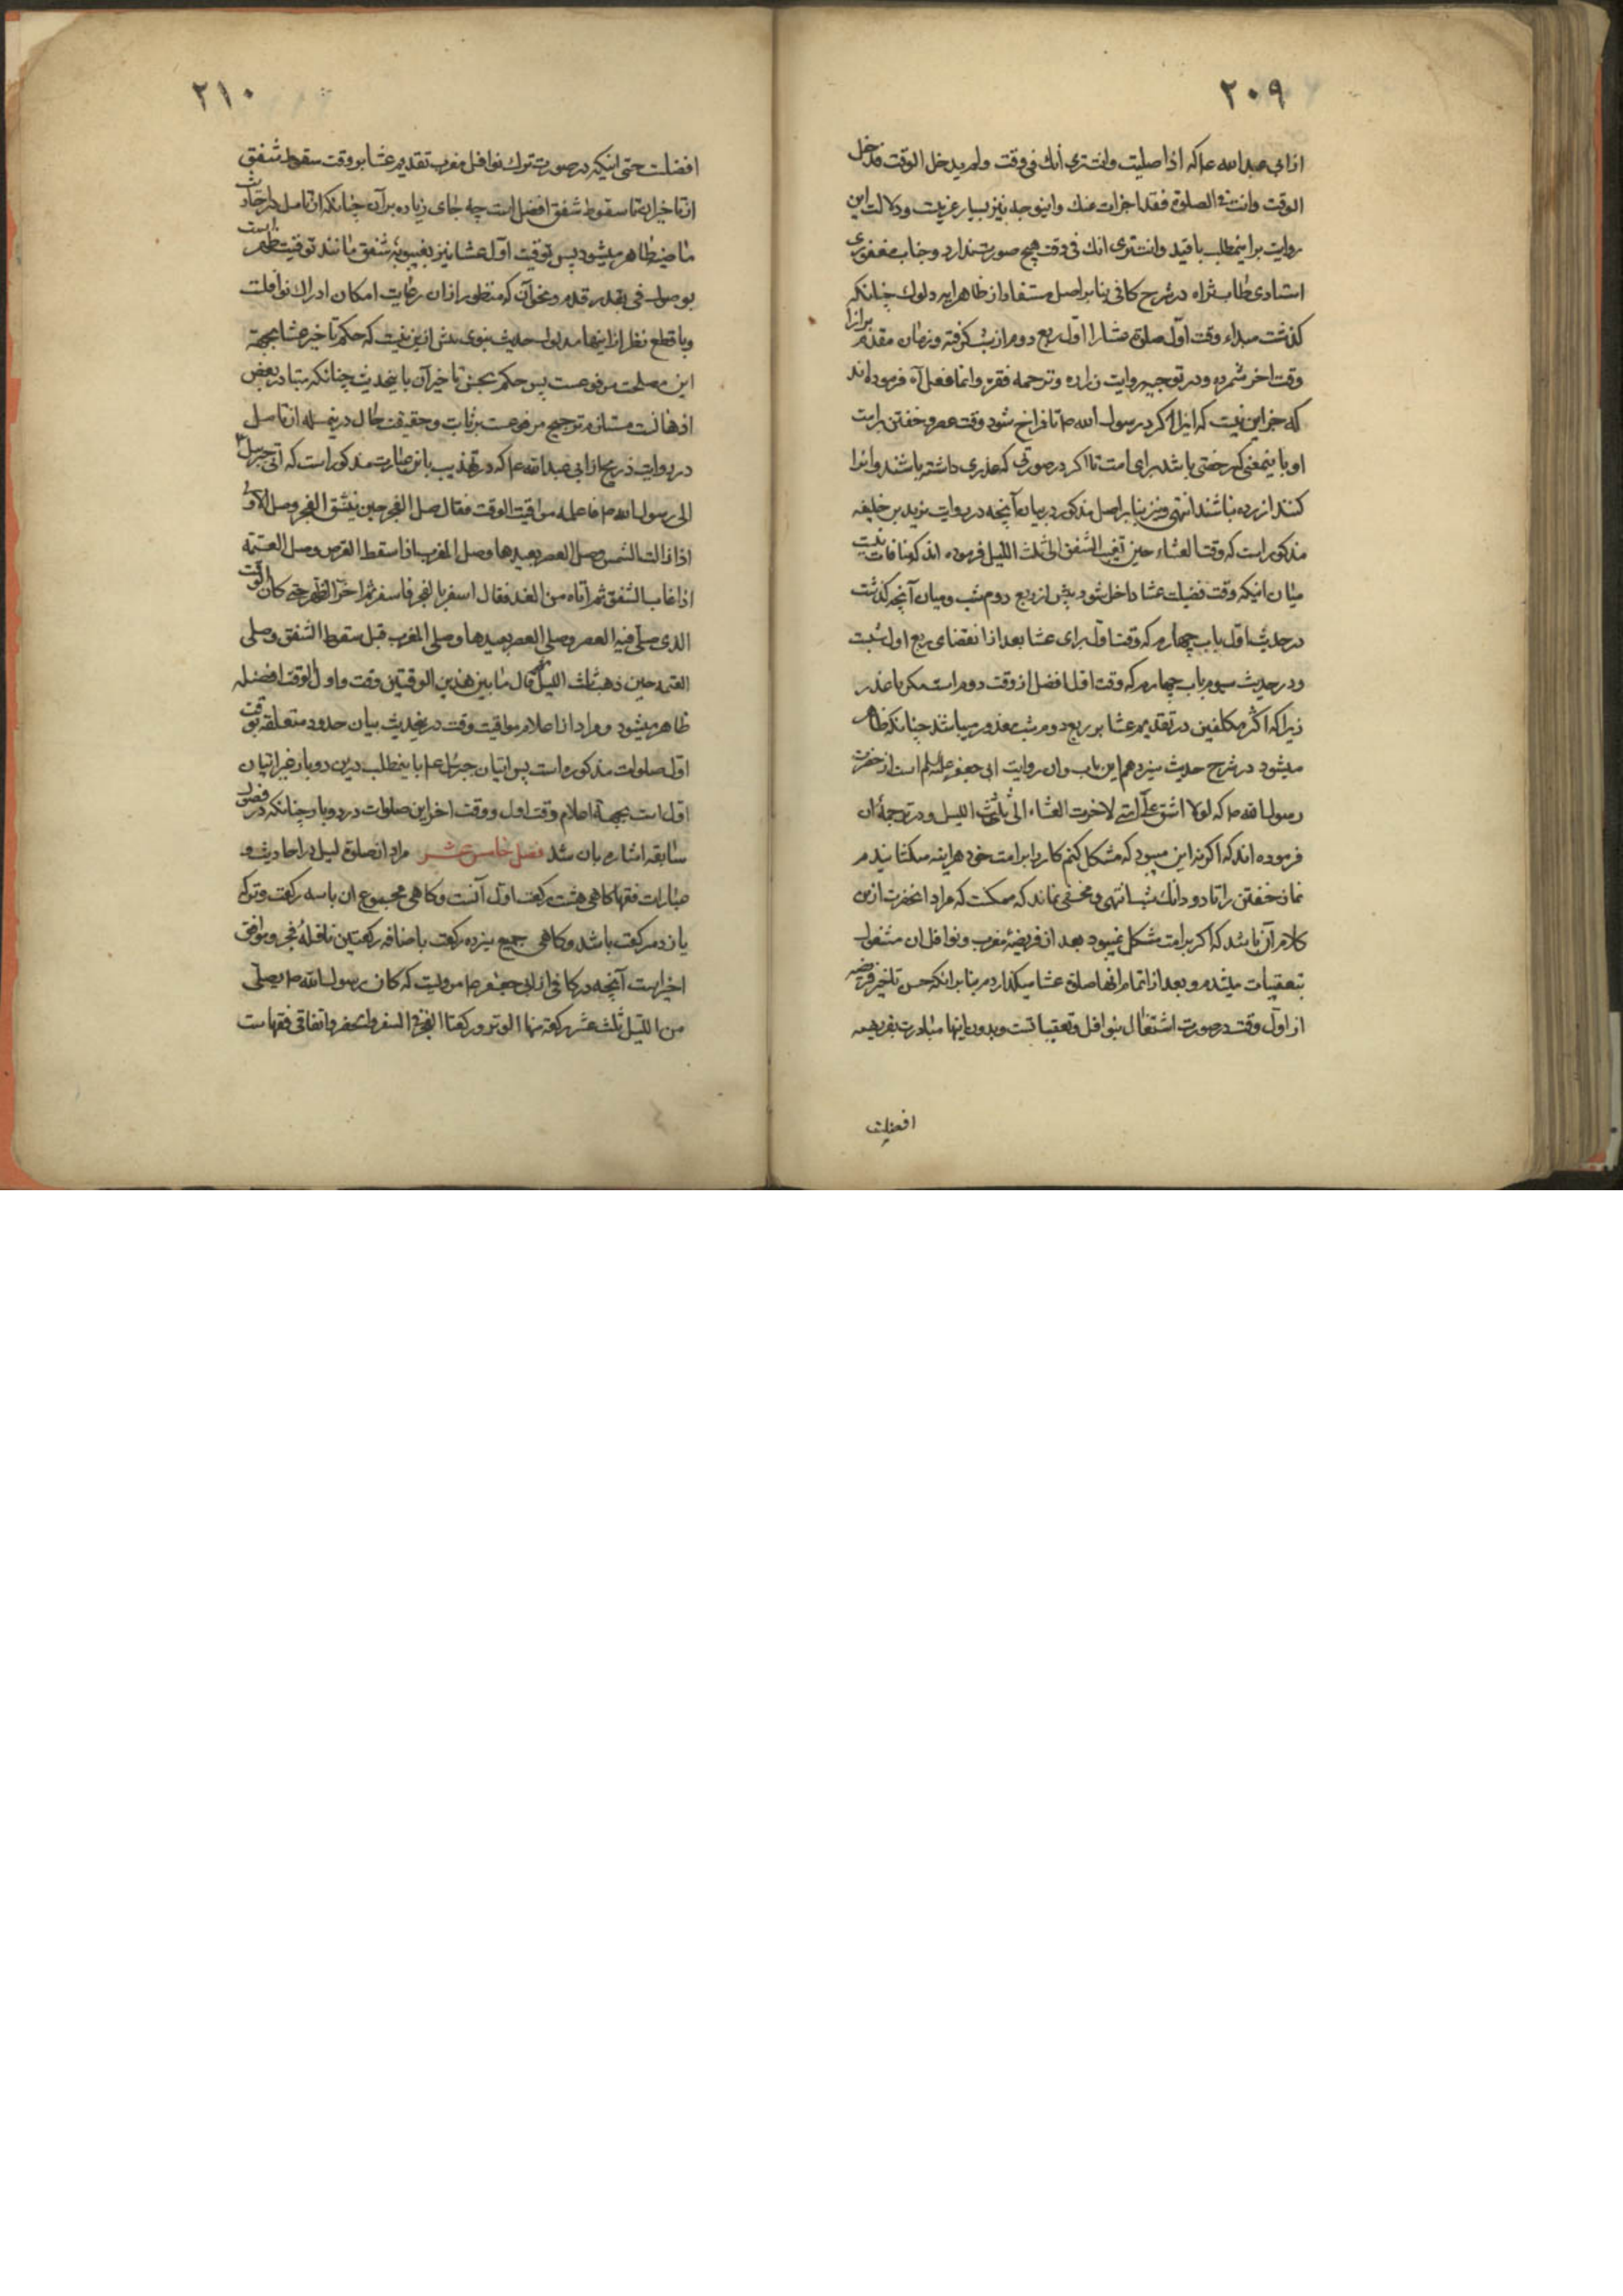 ۲۰۹
از ابی عبد الله ع که اذا صلیت وانت تری أنك فی وقت ولم یدخل الوقت فدخل
الوقت وانت فی الصلوة فقد اجزات عنك و اینوجه نیز بسیار غریبست و دلالت این
روایت بر اینمطلب با قید وانت تری انك فی وقت هیچ صورت ندارد و جناب مغفوری
استادی طاب ثراه در شرح کافی بنا بر اصل مستفاد از ظاهر ایه دلوك چنانکه
کذشت مبداء وقت اول صلوة عشا را اول ربع دوم از شب کرفته و زمان مقدم بر انرا
وقت اخر شمرده و در توجیه روایت زراره و ترجمه فقره وانما فعل آه فرموده اند
که جز این نیست که اینرا کرد رسول الله ص تا فراخ شود وقت عصر و خفتن بر امت
او باینمعنی که رخصتی باشد برای امت تا اکر در صورتی که عذری داشته باشند و انرا
کنند ازرده نباشند انتهی و نیز بنا بر اصل مذکور در بیان آنچه در روایت یزید بن خلیفه
مذکور است که وقت العشاء حین تغیب الشفق الی ثلث اللیل فرموده اند که منافات نیست
میان اینکه وقت فضیلت عشا داخل شود پیش از ربع دوم شب و میان آنچه کذشت
در حدیث اول باب چهارم که وقت اول برای عشا بعد از انقضای ربع اول شبست
و در حدیث سیوم باب چهارم که وقت اول افضل از وقت دوم است مکر با عذر
زیرا که اکثر مکلفین در تقدیم عشا بر ربع دوم شب معذور میباشند چنانکه ظاهر
میشود در شرح حدیث سیزدهم این باب و ان روایت ابی جعفر علیه السلم است از حضرت
رسول الله ص که لولا اشق علی امتی لاخرت العشاء الی ثلث اللیل و در ترجمهٔ ان
فرموده اند که اکر نه این میبود که مشکل کنم کار را بر امت خود هر اینه میکشانیدم
نماز خفتن را تا دو دانك شب انتهی و مخفی نماند که ممکنست که مراد انحضرت ازین
کلام آن باشد که اکر بر امت مشکل نمیبود بعد از فریضهٔ مغرب و نوافل ان مشغول
تعقیبات میشدم و بعد از اتمام انها صلوة عشا میکذاردم بنا بر انکه حسن تاخیر فریضه
از اول وقت در صورت اشتغال بنوافل و تعقیباتست و بدون اینها مبادرت بفریضه
افضلست
۲۱۰
افضلست حتی اینکه در صورت ترك نوافل مغرب تقدیم عشا بر وقت سقوط شفق
از تاخیر ان تا سقوط شفق افضل است چه جای زیاده بر آن چنانکه از تامل در احادیث
ماضیه ظاهر میشود پس توقیت اول عشا نیز بغیبوبهٔ شفق مانند توقیت ظهر است
بوصول فی بقدر قدم و نحو آن که منظور از ان رعایت امکان ادراك نوافلست
و با قطع نظر از اینها مدلول حدیث نبوی بیش ازین نیست که حکم تاخیر عشا بجهة
این مصلحت مرفوعست پس حکم بحسن تاخیر آن باینحدیث چنانکه متبادر بعض
اذهانست مستلزم ترجیح مرفوعست بر ثابت و حقیقت حال درینمسله از تامل
در روایت ذریح از ابی عبد الله ع که در تهذیب باین عبارت مذکور است که اتی جبرئیل ع
الی رسول الله ص فاعلمه مواقیت الوقت فقال صل الفجر حین ینشق الفجر وصل الاولی
اذا زالت الشمس وصل العصر بعیدها وصل المغرب اذا سقط القرص وصل العتمة
اذا غاب الشفق ثم اتاه من الغد فقال اسفر بالفجر فاسفر ثم اخر الظهر حتی کان الوقت
الذی صلی فیه العصر وصلی العصر بعیدها وصلی المغرب قبل سقوط الشفق وصلی
العتمه حین ذهب ثلث اللیل ثم قال ما بین هذین الوقتین وقت و اول الوقت افضله
ظاهر میشود و مراد از اعلام مواقیت وقت درینحدیث بیان حدود متعلقه بوقت
اول صلوات مذکوره است پس اتیان جبرئل ع باینمطلب درین دو بار غیر اتیان
اول است بجهة اعلام وقت اول و وقت اخر این صلوات در دو بار چنانکه در فصول
سابقه اشاره بان شد فصل خامس عشر مراد از صلوة لیل در احادیث و
عبارات فقها کاهی هشت رکعت اول آنست و کاهی مجموع ان با سه رکعت وتر که
یازده رکعت باشد و کاهی جمیع سیزده رکعت باضافه رکعتین نافلهٔ فجر و موافق
اخیر است آنچه در کافی از ابی جعفر ع مرویست که کان رسول الله ص یصلی
من اللیل ثلث عشر رکعة منها الوتر و رکعتا الفجر فی السفر والحضر و اتفاقی فقهاست